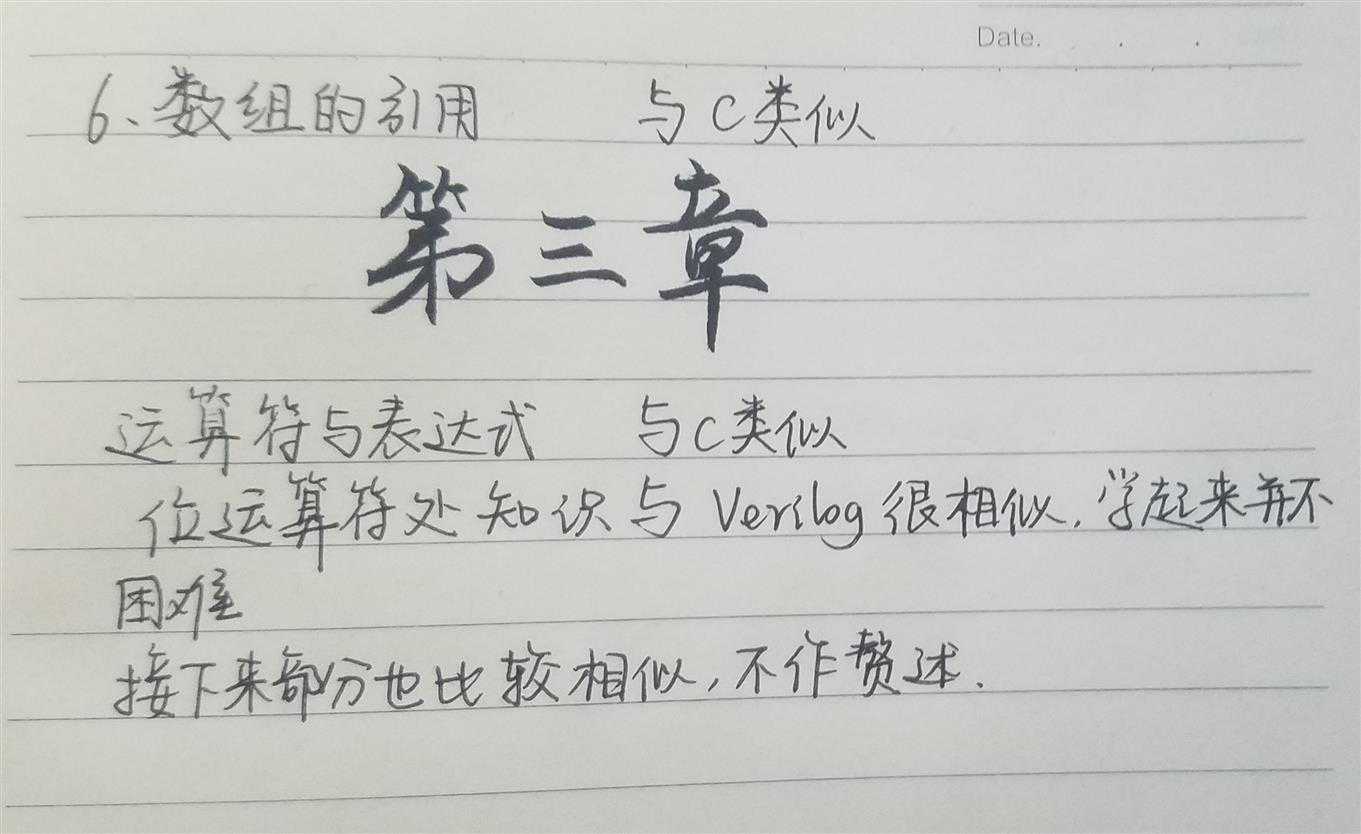 Date.
6、数组的引用 与C类似
第三章
运算符与表达式 与C类似
位运算符处知识与Verilog很相似,学起来并不
困难
接下来部分也比较相似,不作赘述.